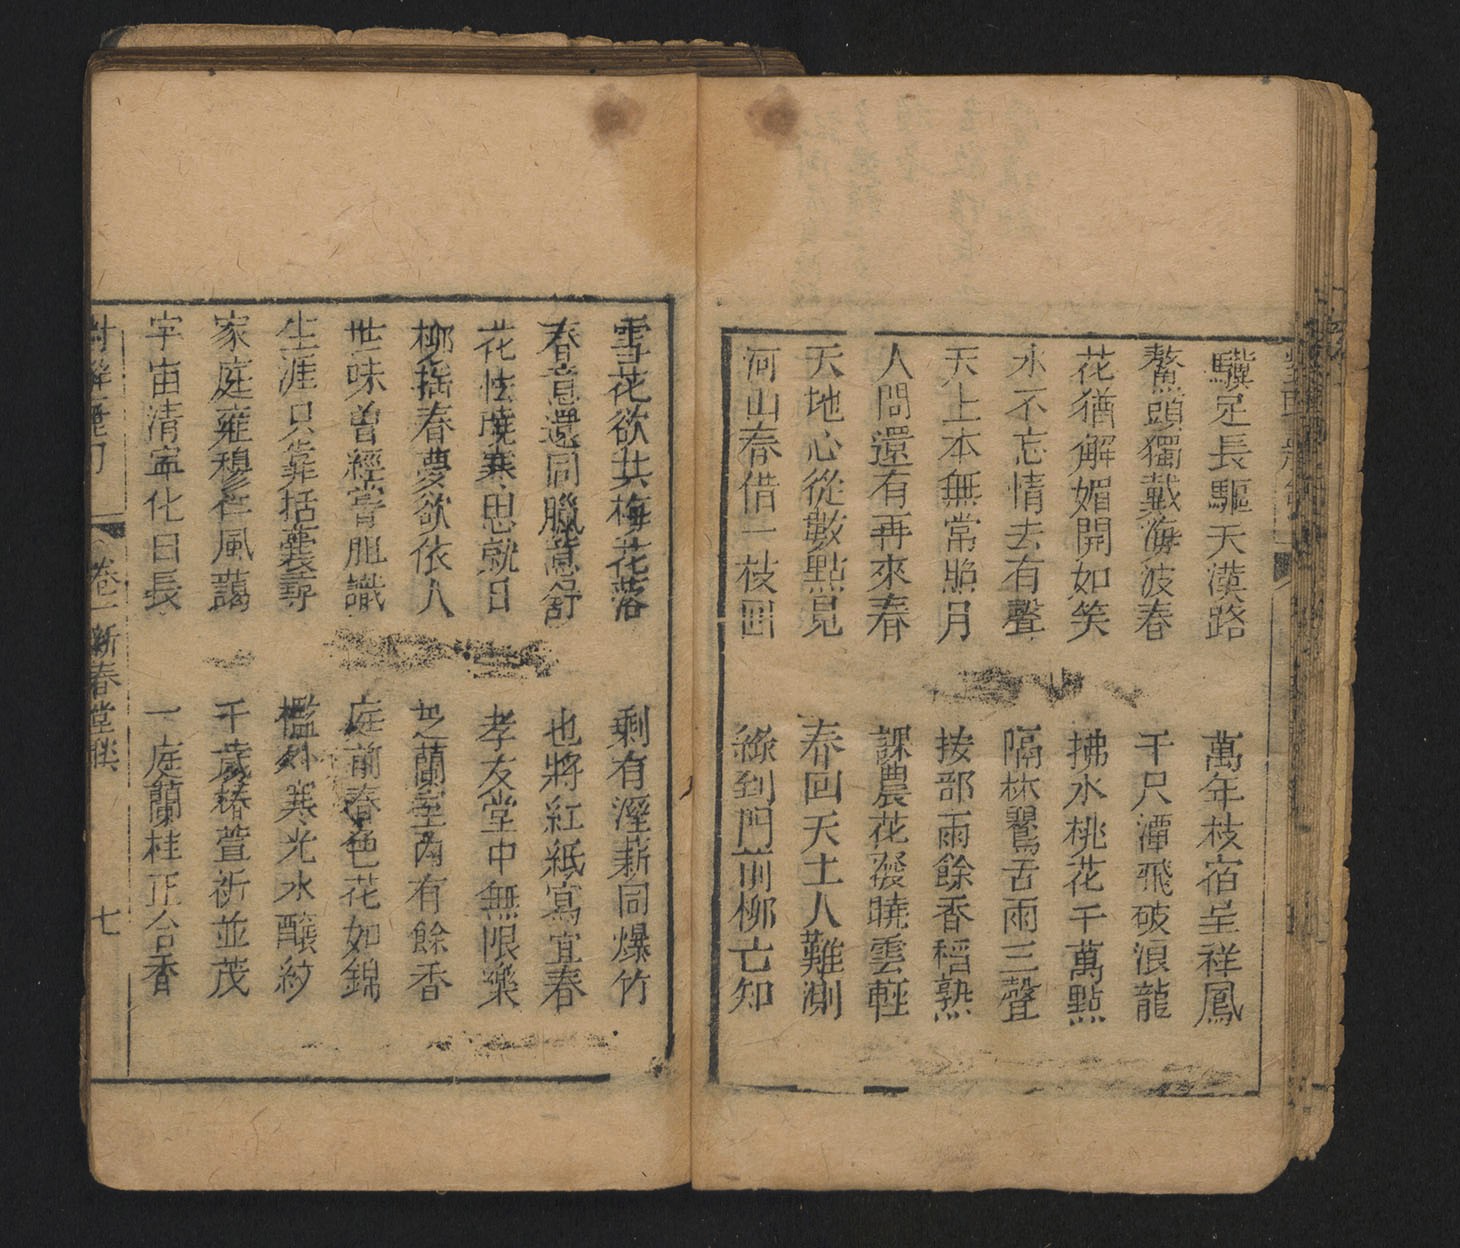 驥足長驅天漢路 萬年枝宿呈祥鳳
鰲頭獨戴海波春 千尺潭飛破浪龍
花猶解媚開如笑 拂水桃花千萬點
水不忘情去有聲 隔林鶯舌兩三聲
天上本無常照月 按部雨餘香稻熟
人間還有再來春 課農花發曉雲輕
天地心從數點見 春回天上人難測
河山春借一枝回 綠到門前柳已知
雪花欲共梅花落 剩有溼薪同爆竹
春意還同臘意舒 也將紅紙寫宜春
花怯曉寒思就日 孝友堂中無限樂
柳搖春夢欲依人 芝蘭室內有餘香
世味曾經嘗胆識 庭前春色花如錦
生涯只靠括囊尋 檻外寒光水釀紋
家庭雍穆仁風藹 千歲椿萱祈並茂
宇宙清寧化日長 一庭蘭桂正合香
卷一 新春堂牒 七